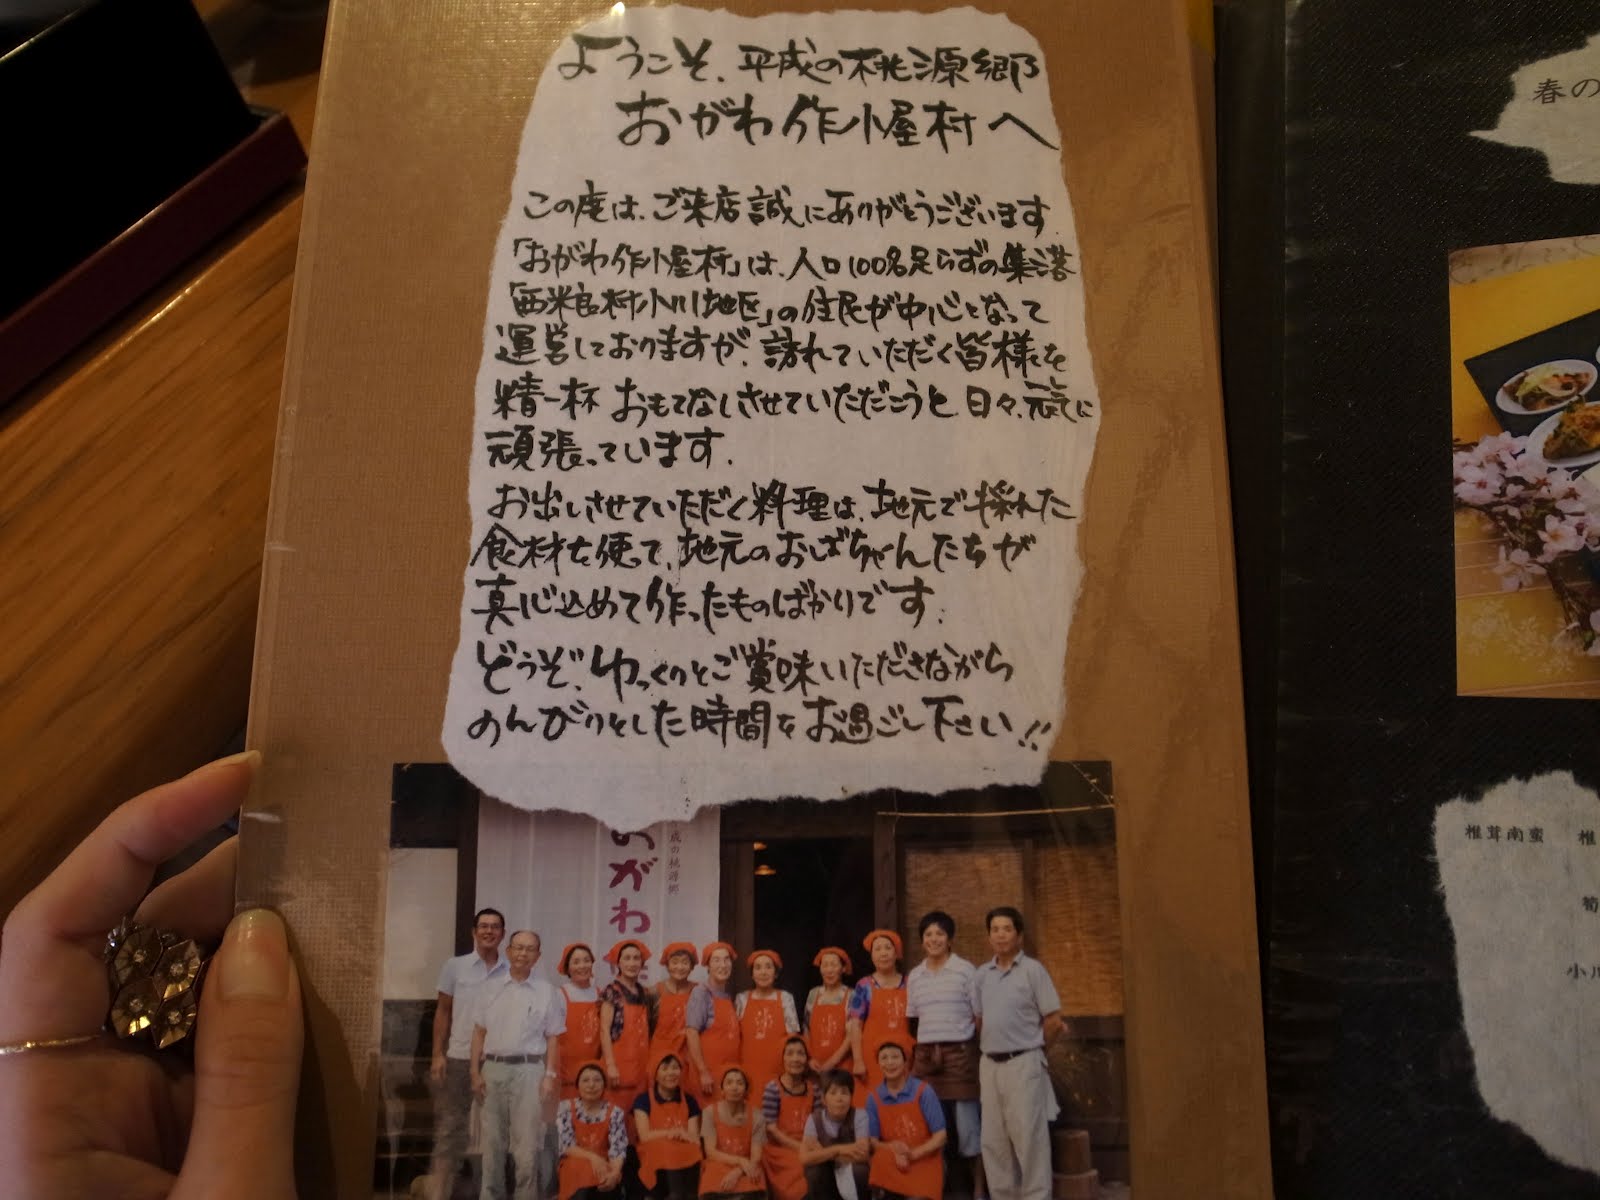 ようこそ、平成の桃源郷
おがわ作小屋村へ
この度は、ご来店誠にありがとうございます.
「おがわ作小屋村」は、人口100名足らずの集落
「西米良村小川地区」の住民が中心となって
運営しておりますが、訪れていただく皆様を
精一杯おもてなしさせていただこうと、日々、元気に
頑張っています.
お出しさせていただく料理は、地元で採れた
食材を使って、地元のおばちゃんたちが
真心込めて作ったものばかりです.
どうぞ、ゆっくりとご賞味いただきながら
のんびりとした時間をお過ごし下さい!!
成の桃源郷
おがわ
春の
椎茸南蛮 椎
筍
小川